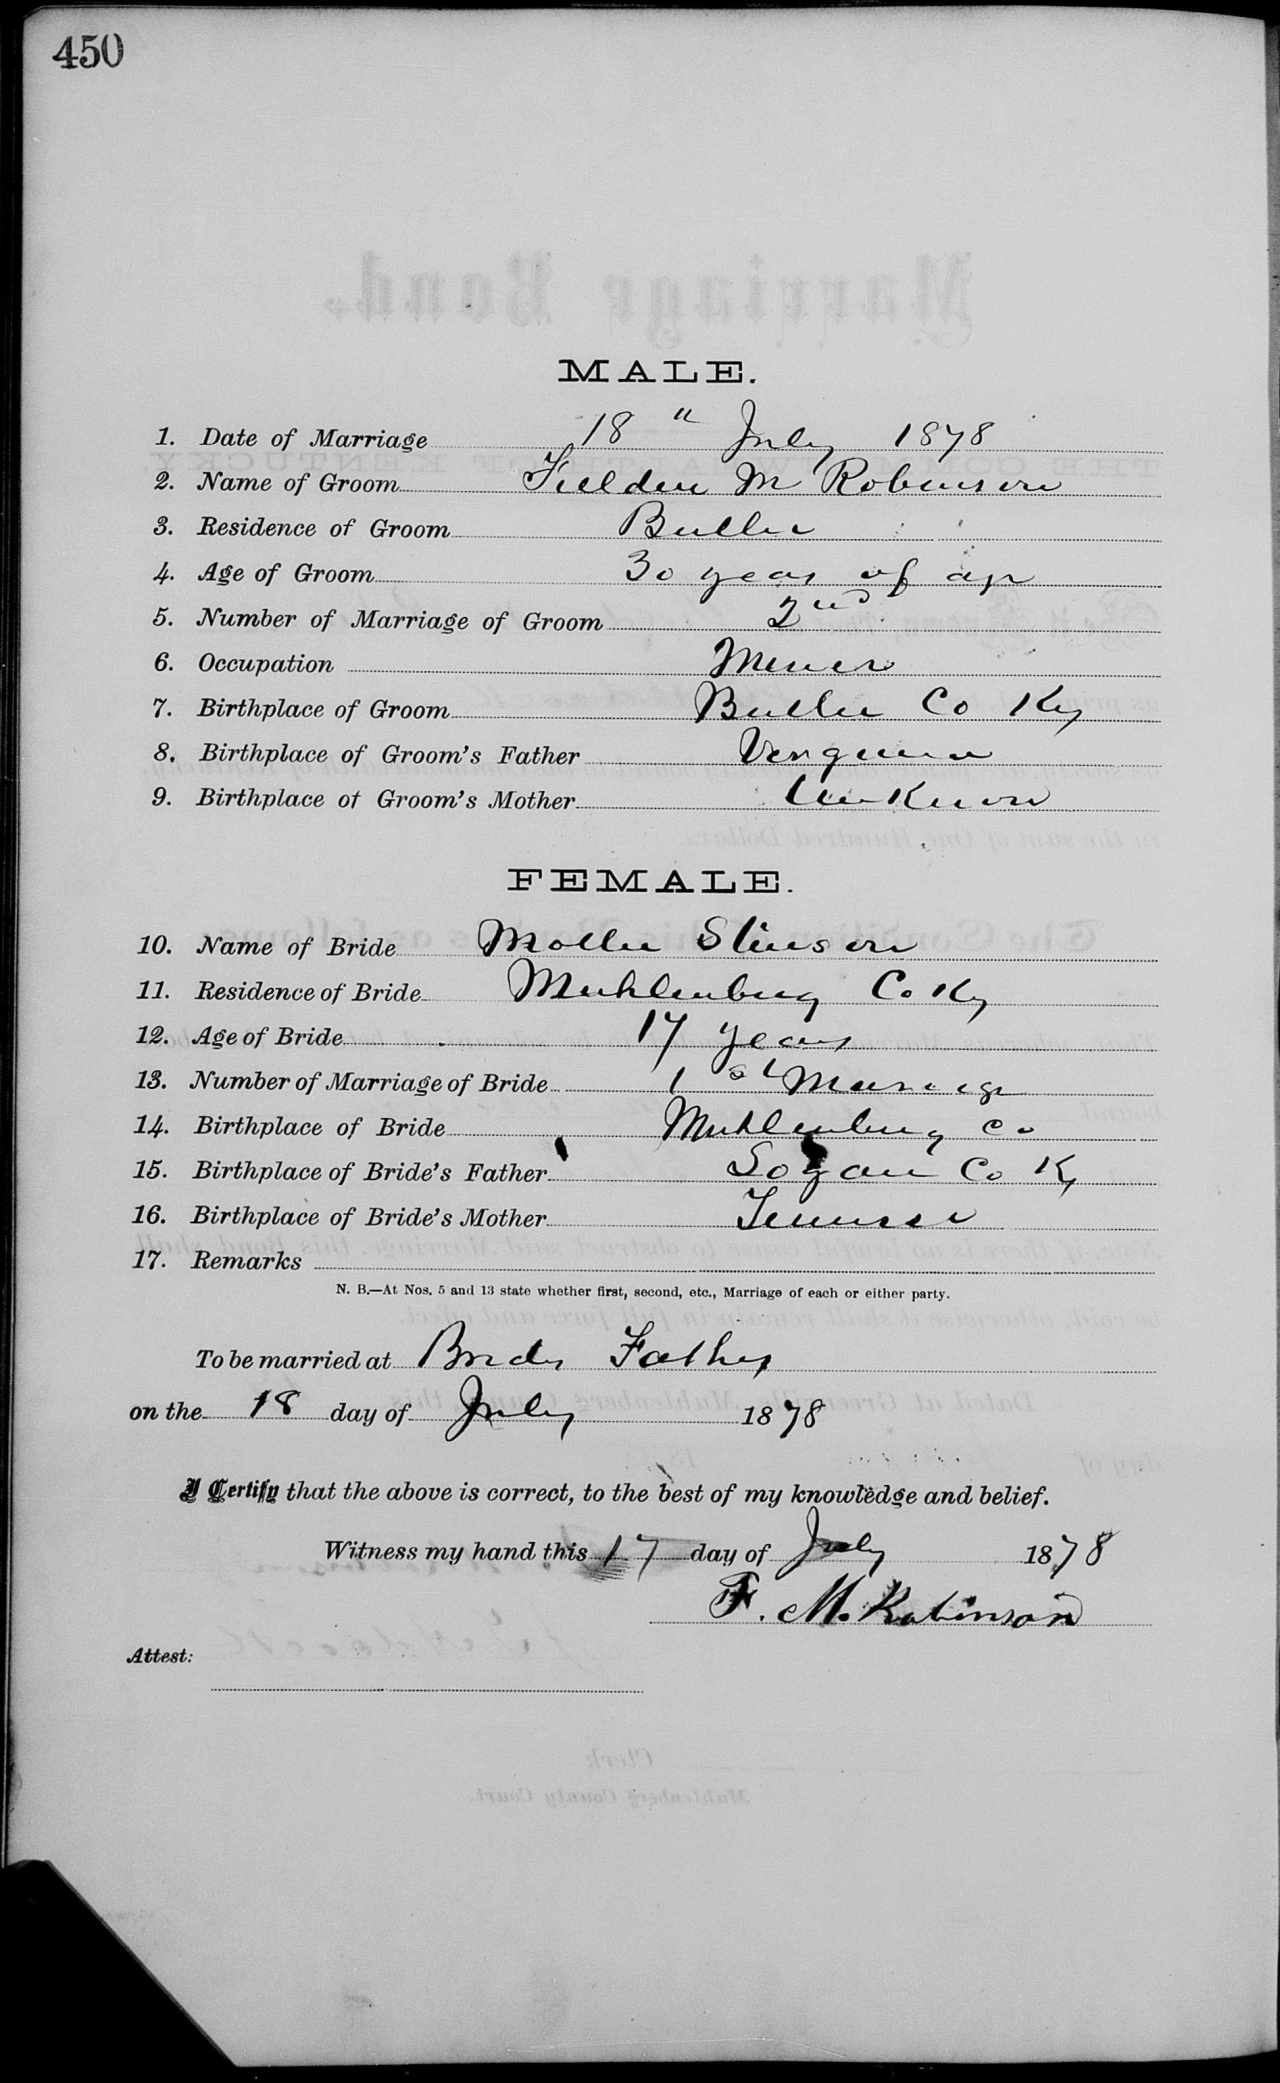 450
MALE.
1. Date of Marriage 18" July 1878
2. Name of Groom Fielden M Robinson
3. Residence of Groom Butler
4. Age of Groom 30 years of age
5. Number of Marriage of Groom 2nd
6. Occupation Miner
7. Birthplace of Groom Butler Co Ky
8. Birthplace of Groom's Father Virginia
9. Birthplace of Groom's Mother Unknown
FEMALE.
10. Name of Bride Mollie Stinson
11. Residence of Bride Muhlenburg Co Ky
12. Age of Bride 17 years
13. Number of Marriage of Bride 1st Marriage
14. Birthplace of Bride Muhlenburg Co
15. Birthplace of Bride's Father Logan Co Ky
16. Birthplace of Bride's Mother Tennessee
17. Remarks
N. B.—At Nos. 5 and 13 state whether first, second, etc., Marriage of each or either party.
To be married at Brides Fathers
on the 18 day of July 1878
I Certify that the above is correct, to the best of my knowledge and belief.
Witness my hand this 17 day of July 1878
F. M. Robinson
Attest: